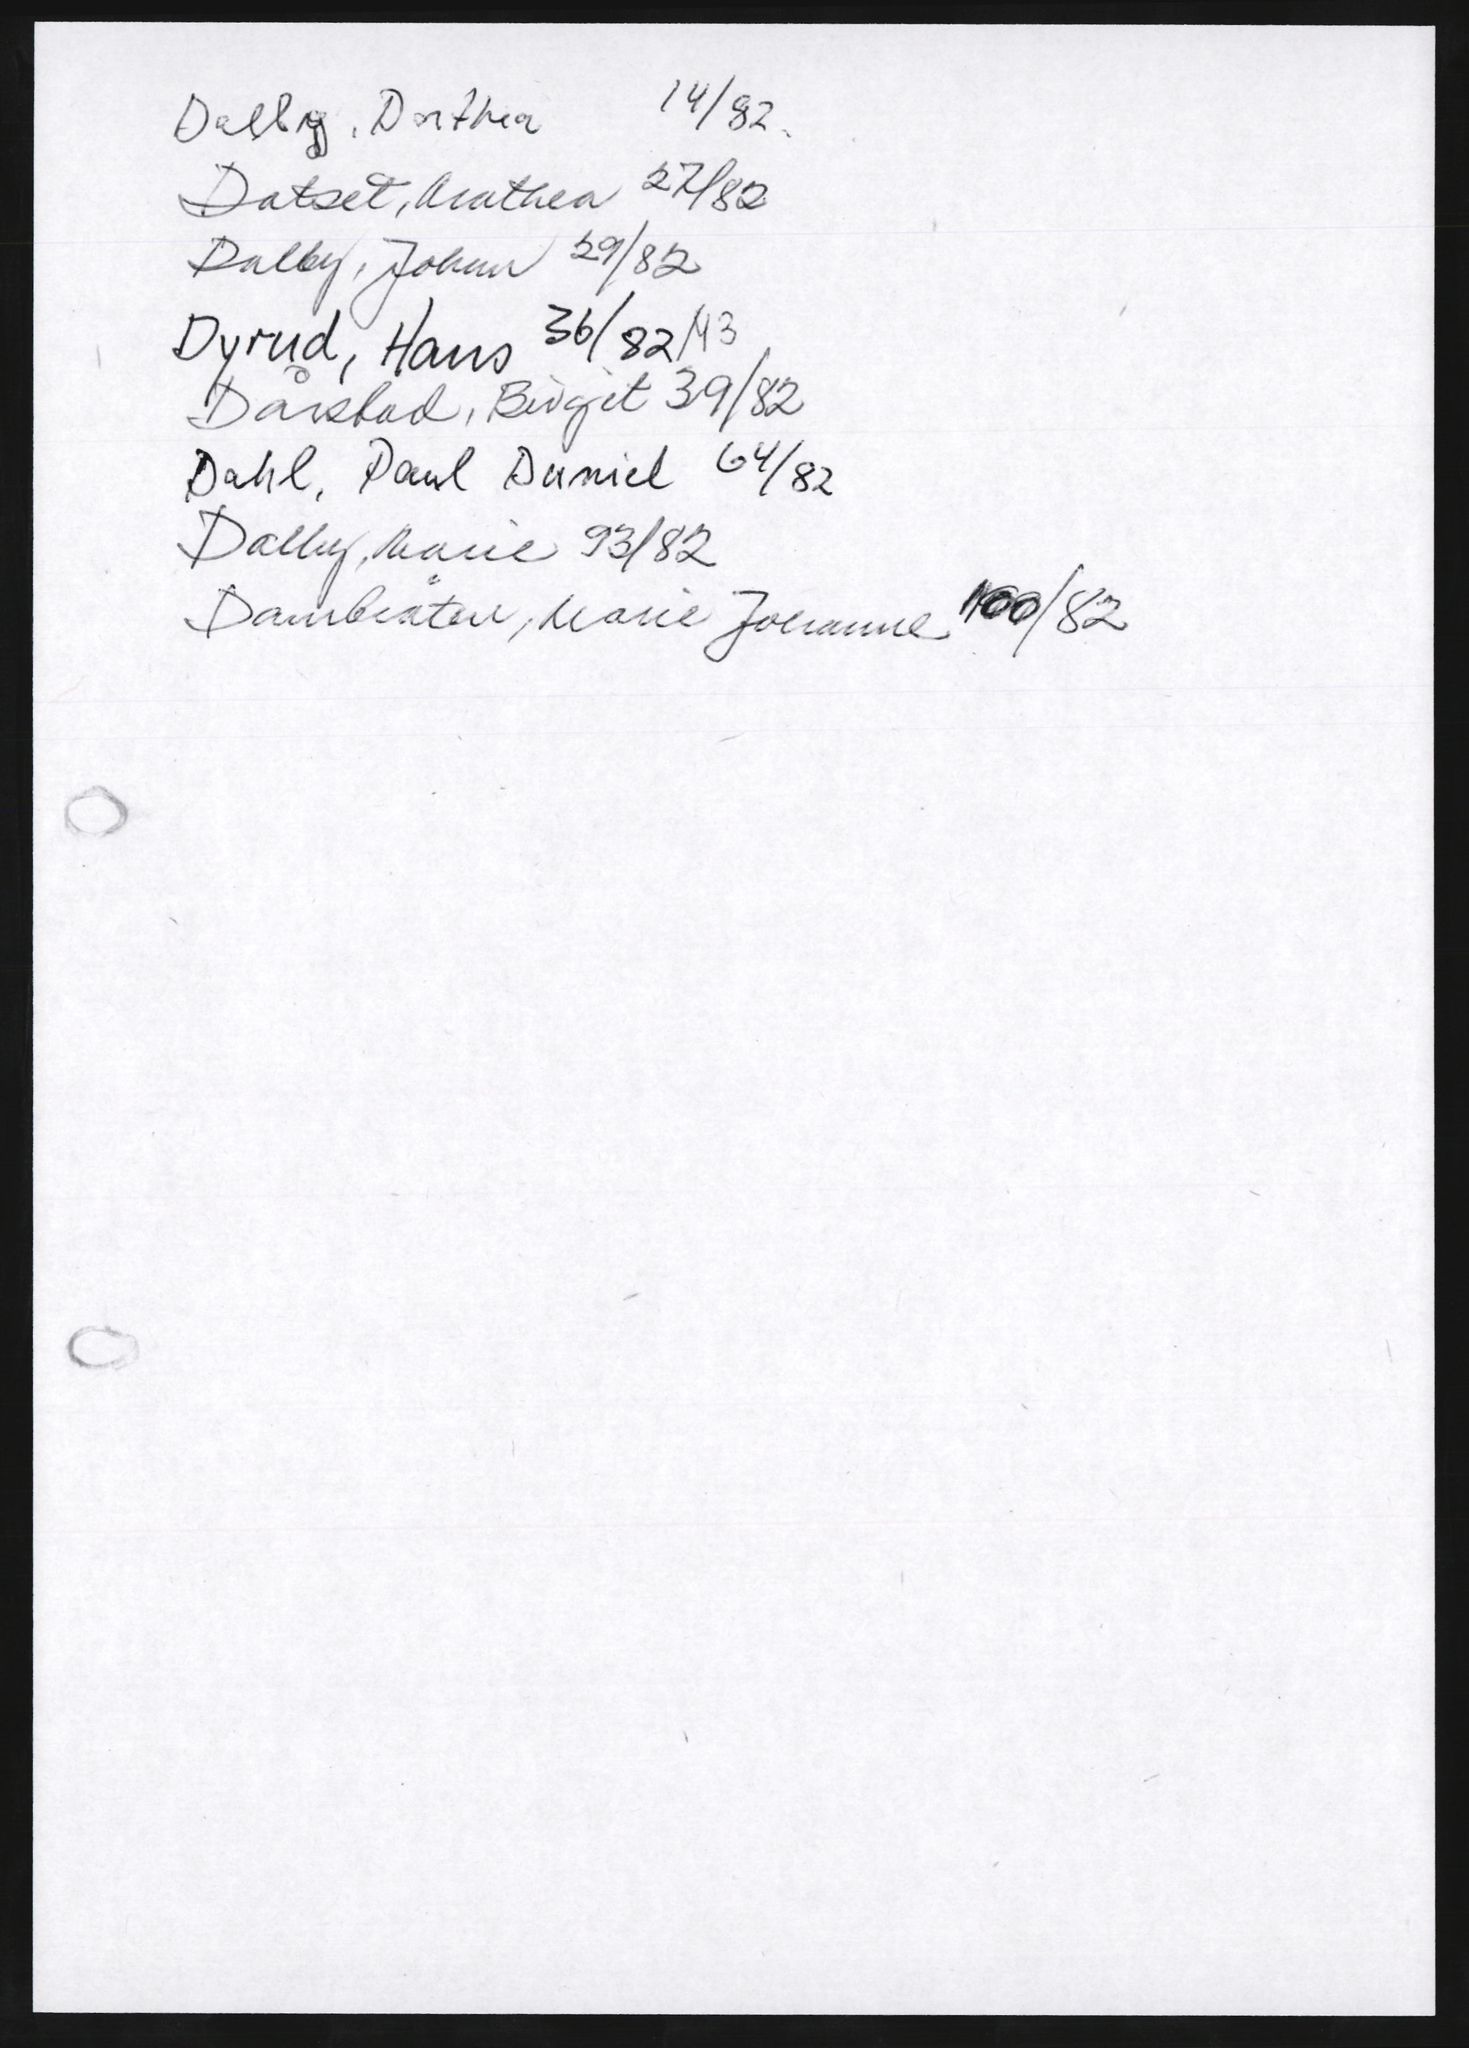 Dalby, Dorthea 14/82.
Datset, Mathea 27/82
Dalby, Johan 29/82
Dyrud, Hans 36/82/43
Dårstad, Birgit 39/82
Dahl, Paul Daniel 64/82
Dalby, Marie 93/82
Dambråten, Marie Johanne 100/82